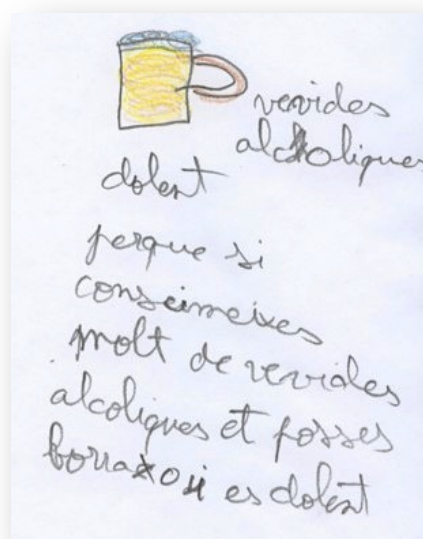 vevides
alcholiques
dolent
perque si
conseimeixes
molt de vevides
alcoliques et posses
borratxo i es dolent